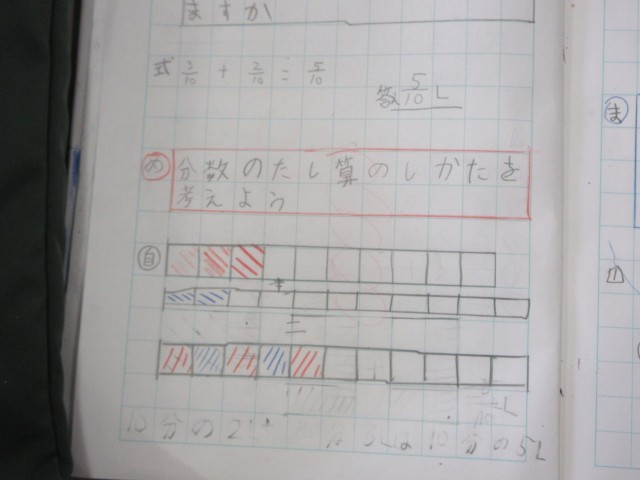 ますか
式 3/10 + 2/10 = 5/10
答 5/10 L
め 分数のたし算のしかたを
考えよう
自
+
=
10分の2
は10分の5L
ま